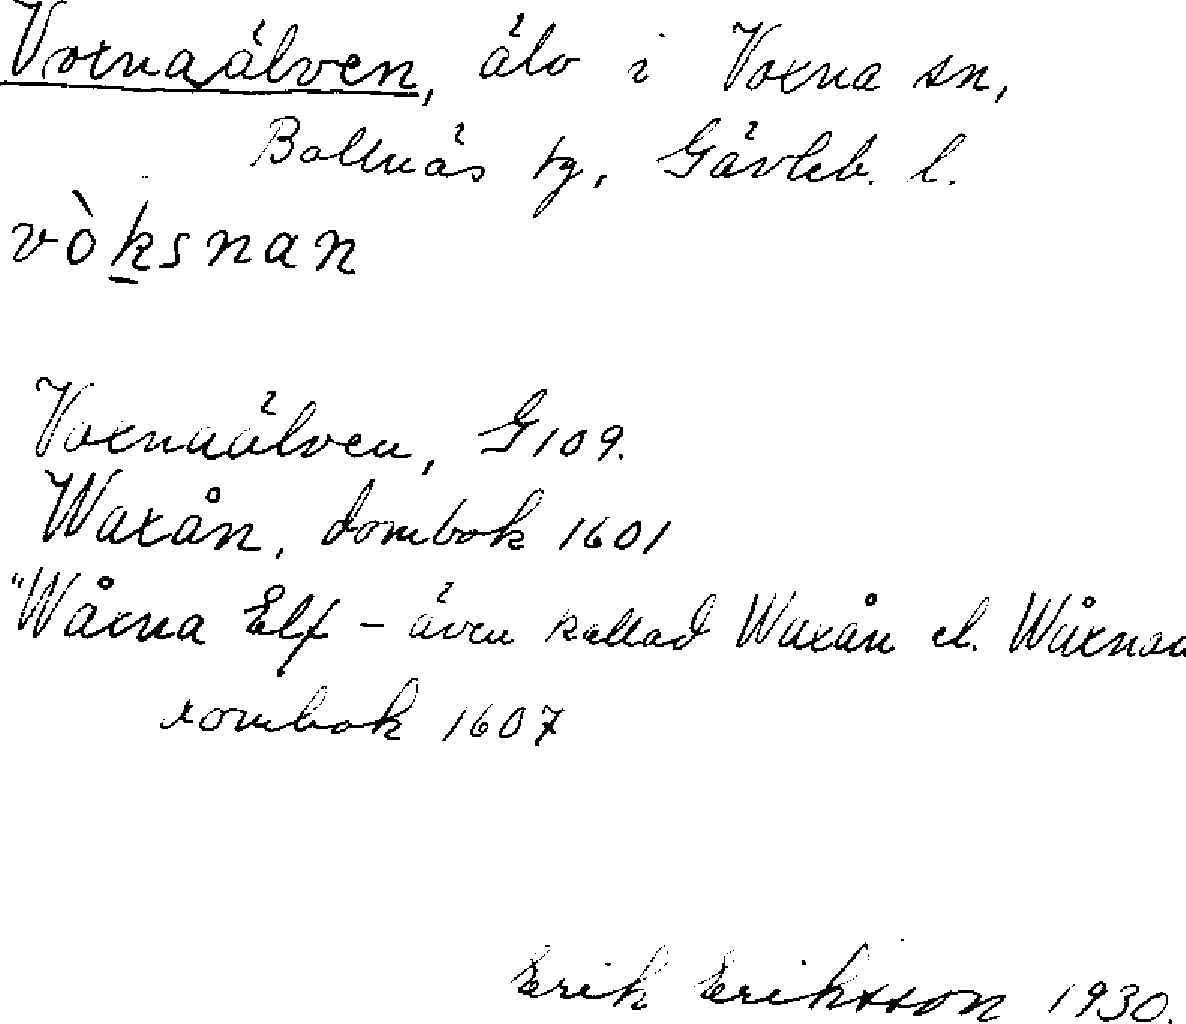 Voxnaälven, älv i Voxna sn,
Bollnäs tg, Gävleb. l.
vòksnan
Voxnaälven, G109.
Waxån, dombok 1601
"Wåxna Elf – även kallad Waxån el. Wåxnan
dombok 1607
Erik Eriksson 1930.